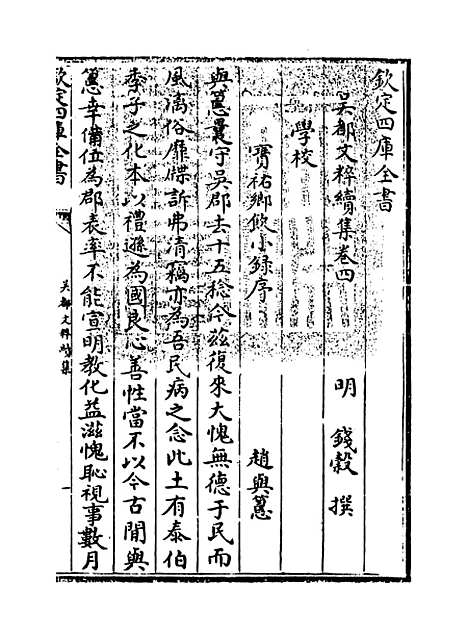 欽定四庫全書
吳都文粹續集卷四
明 錢穀 撰
學校
寶祐鄉飲小錄序 趙與𥲅
與𥲅曩守吳郡去十五稔今茲復來大愧無德于民而
風漓俗靡牒訴弗清竊亦為吾民病之念此土有泰伯
季子之化本以禮遜為國良心善性當不以今古間與
𥲅幸備位為郡表率不能宣明教化益滋愧恥視事數月
欽定四庫全書
吳都文粹續集
一